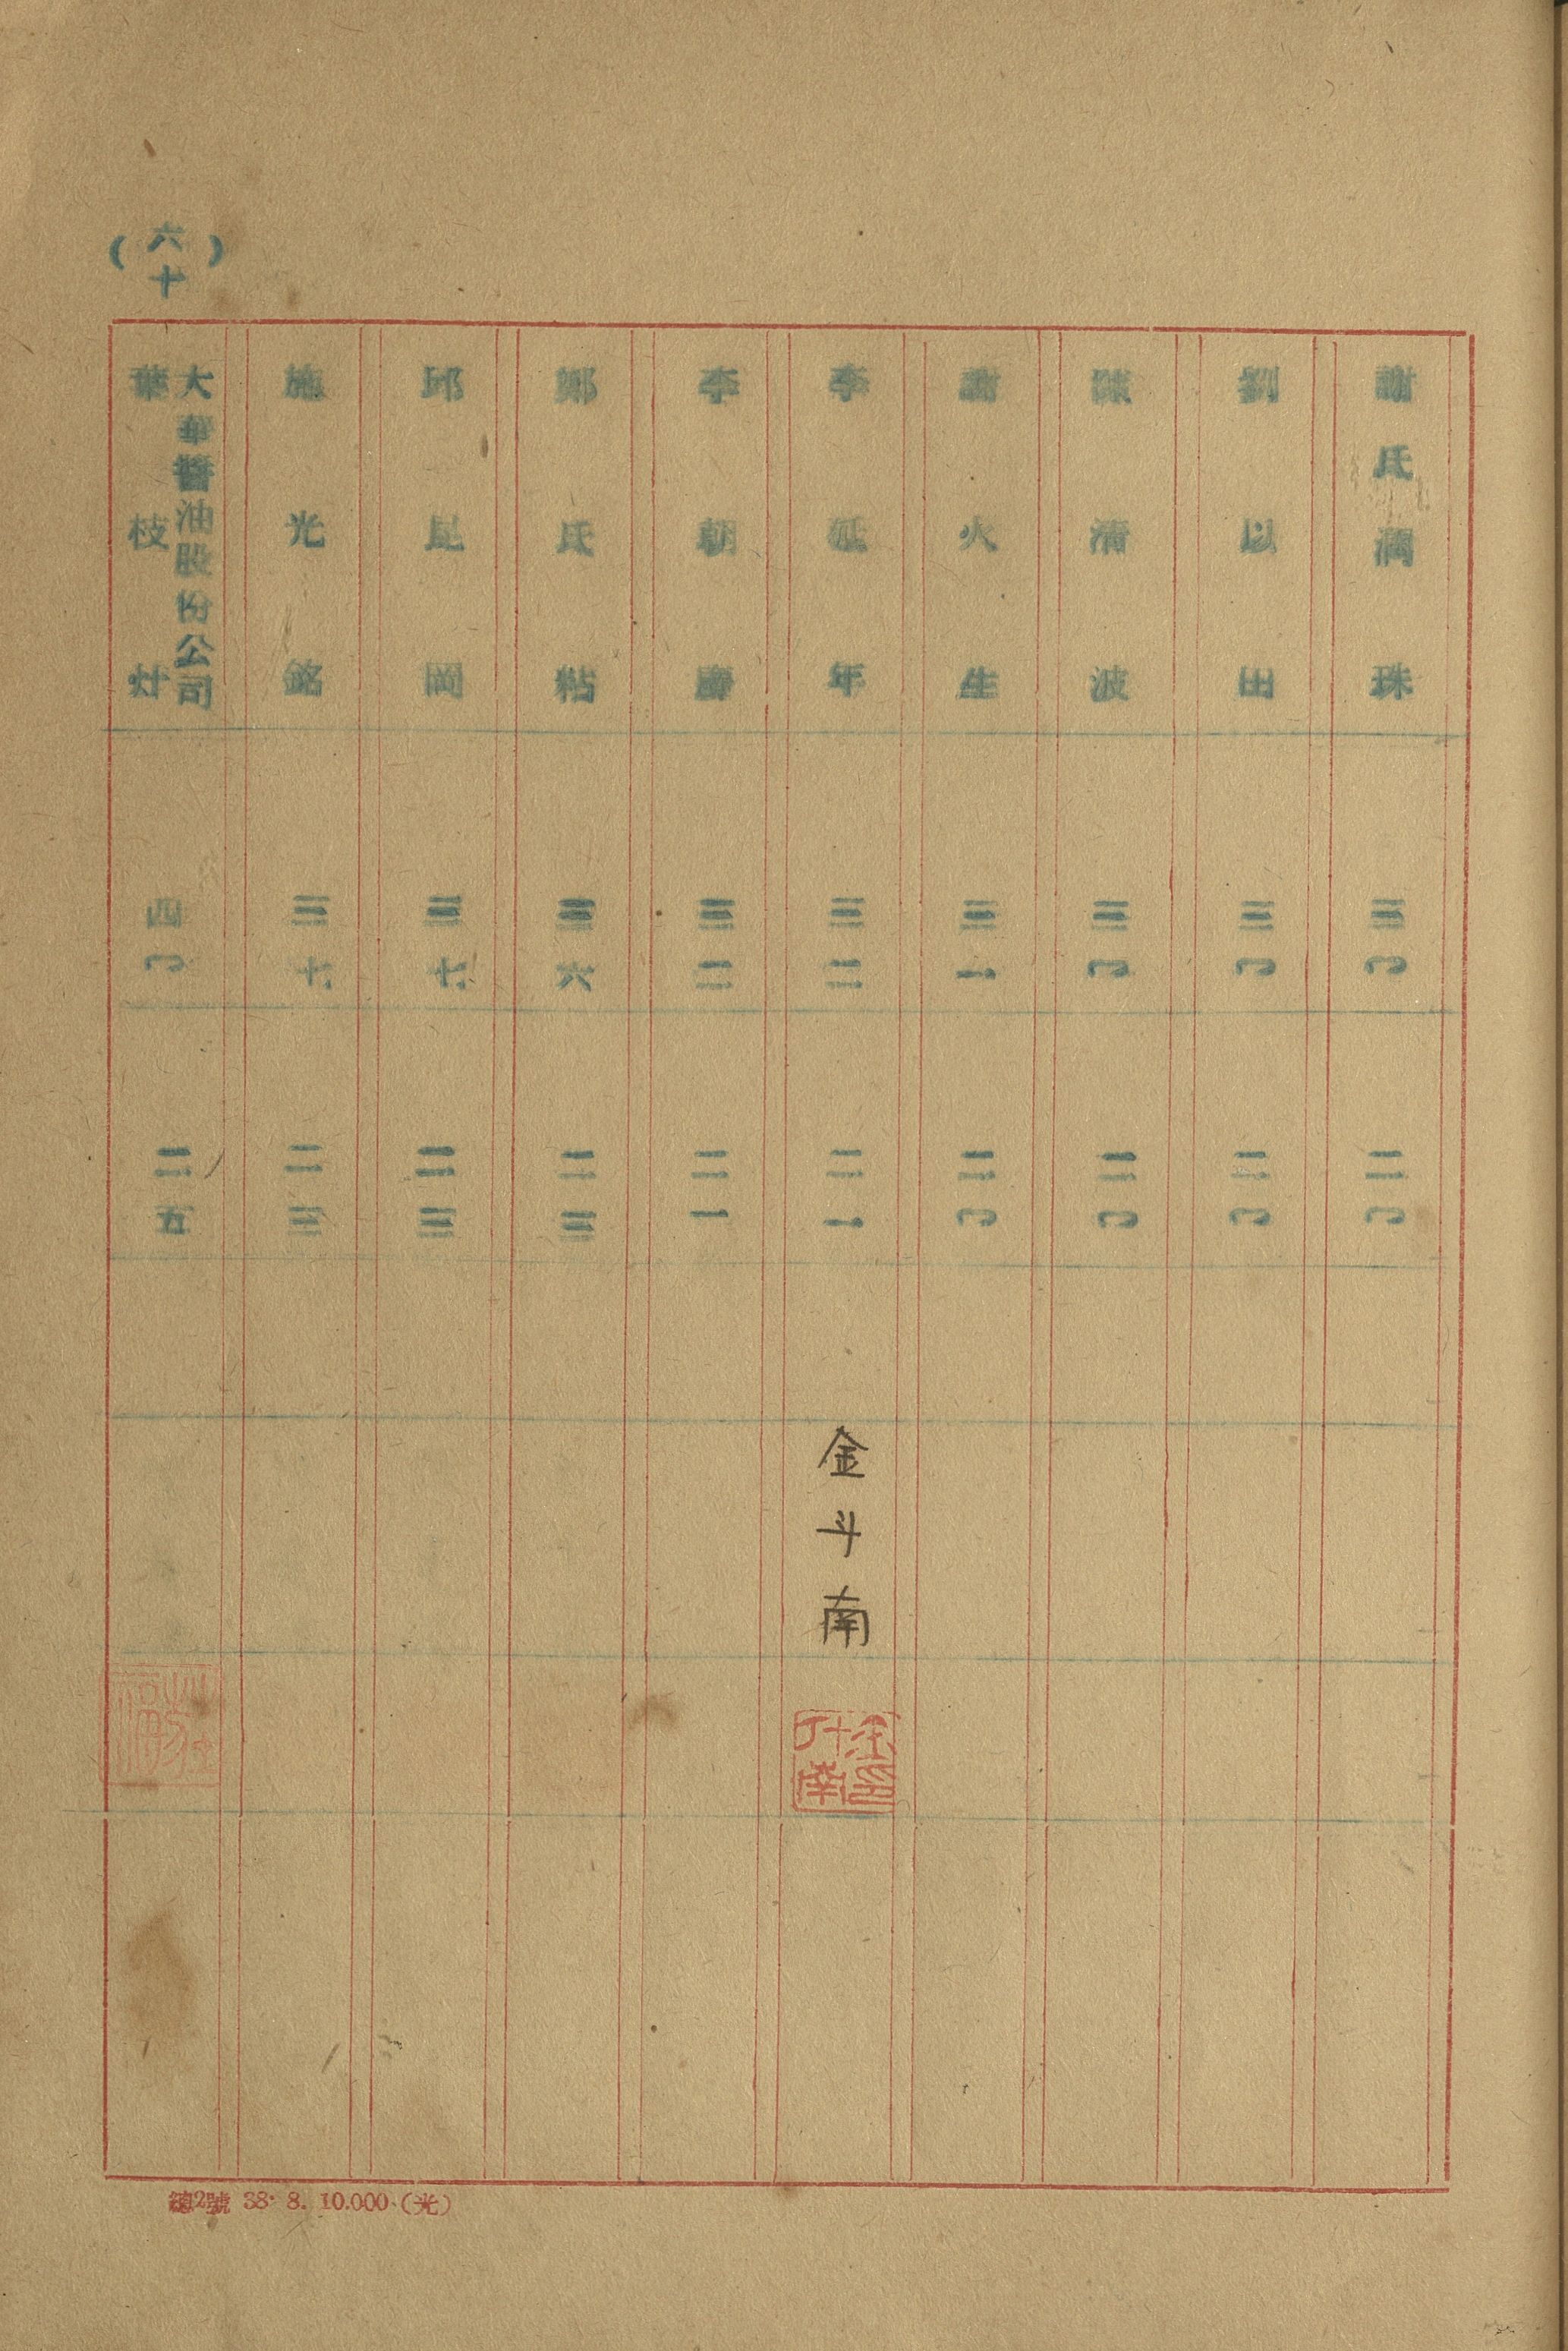 謝氏潤珠 三〇 二〇
劉以田 三〇 二〇
陳清波 三〇 二〇
謝火生 三一 二〇
李延年 三二 二一 金斗南
李朝壽 三二 二一
鄭氏粘 三六 二三
邱昆岡 三六 二三
施光銘 三六 二三
大華醬油股份公司
葉枝灶 四〇 二五
(六十)
總2號 38. 8. 10.000 (光)